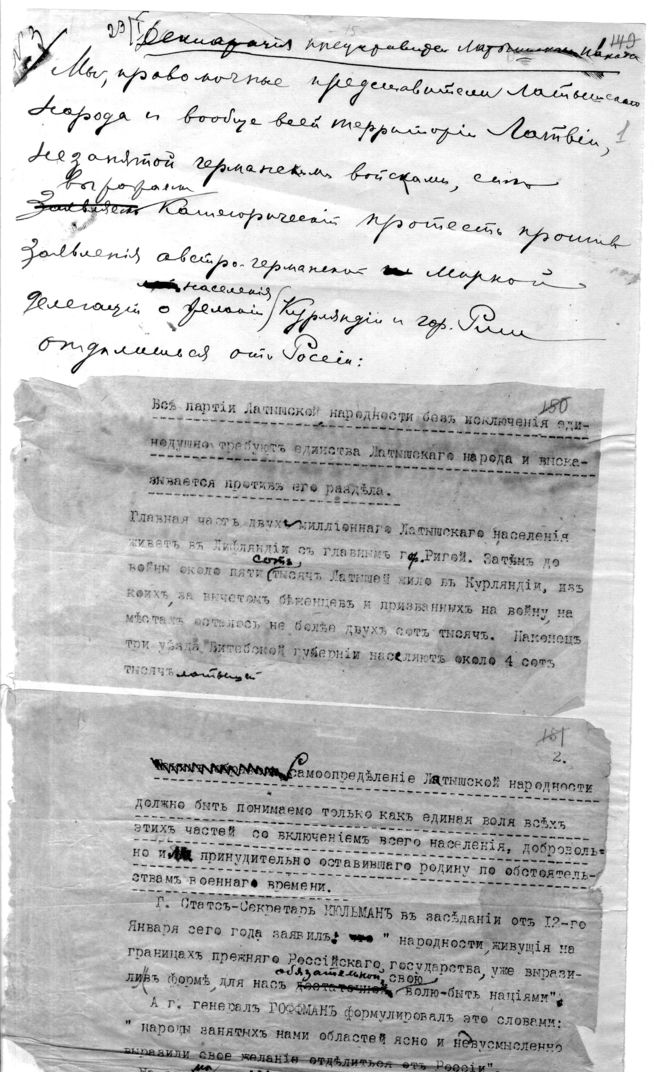 № 3 23/I 149
Декларація представител Латышскаго Народа
Мы, правомочные представители Латышскаго
Народа и вообще всей территоріи Латвіи, 1
незанятой германскими войсками, симъ
выражаемъ
Заявляемъ Категорическій протестъ противъ
Заявленія австро-германской Мирной
населенія
Делегаціи о желаніи Курляндіи и гор. Риги
отдѣлиться отъ Россіи:
150
Всѣ партіи Латышской народности безъ исключенія еди-
нодушно требуютъ единства Латышскаго народа и выска-
зывается противъ его раздѣла.
Главная часть двухъ милліоннаго Латышскаго населенія
живетъ въ Лифляндіи съ главнымъ гор. Ригой. Затѣмъ до
сотъ
войны около пяти тысячъ Латышей жило въ Курляндіи, изъ
коихъ, за вычетомъ бѣженцевъ и призванныхъ на войну, на
мѣстахъ осталось не болѣе двухъ сотъ тысячъ. Наконецъ
три уѣзда Витебской губерніи населяютъ около 4 сотъ
тысячъ латышей
151
2.
Самоопредѣленіе Латышской народности
должно быть понимаемо только какъ единая воля всѣхъ
этихъ частей со включеніемъ всего населенія, доброволь-
но и принудительно оставившаго родину по обстоятель-
ствамъ военнаго времени.
Г. Статсъ-Секретарь КЮЛЬМАНЪ въ засѣданіи отъ 12-го
Января сего года заявилъ: что " народности, живущія на
границахъ прежняго Россійскаго государства, уже вырази-
обязательной, свою
ли въ формѣ, для насъ достаточной волю-быть націями".
А г. генералъ ГОФМАНЪ формулировалъ это словами:
" народы занятыхъ нами областей ясно и невусмысленно
выразили свое желаніе отдѣлиться отъ Россіи".
на